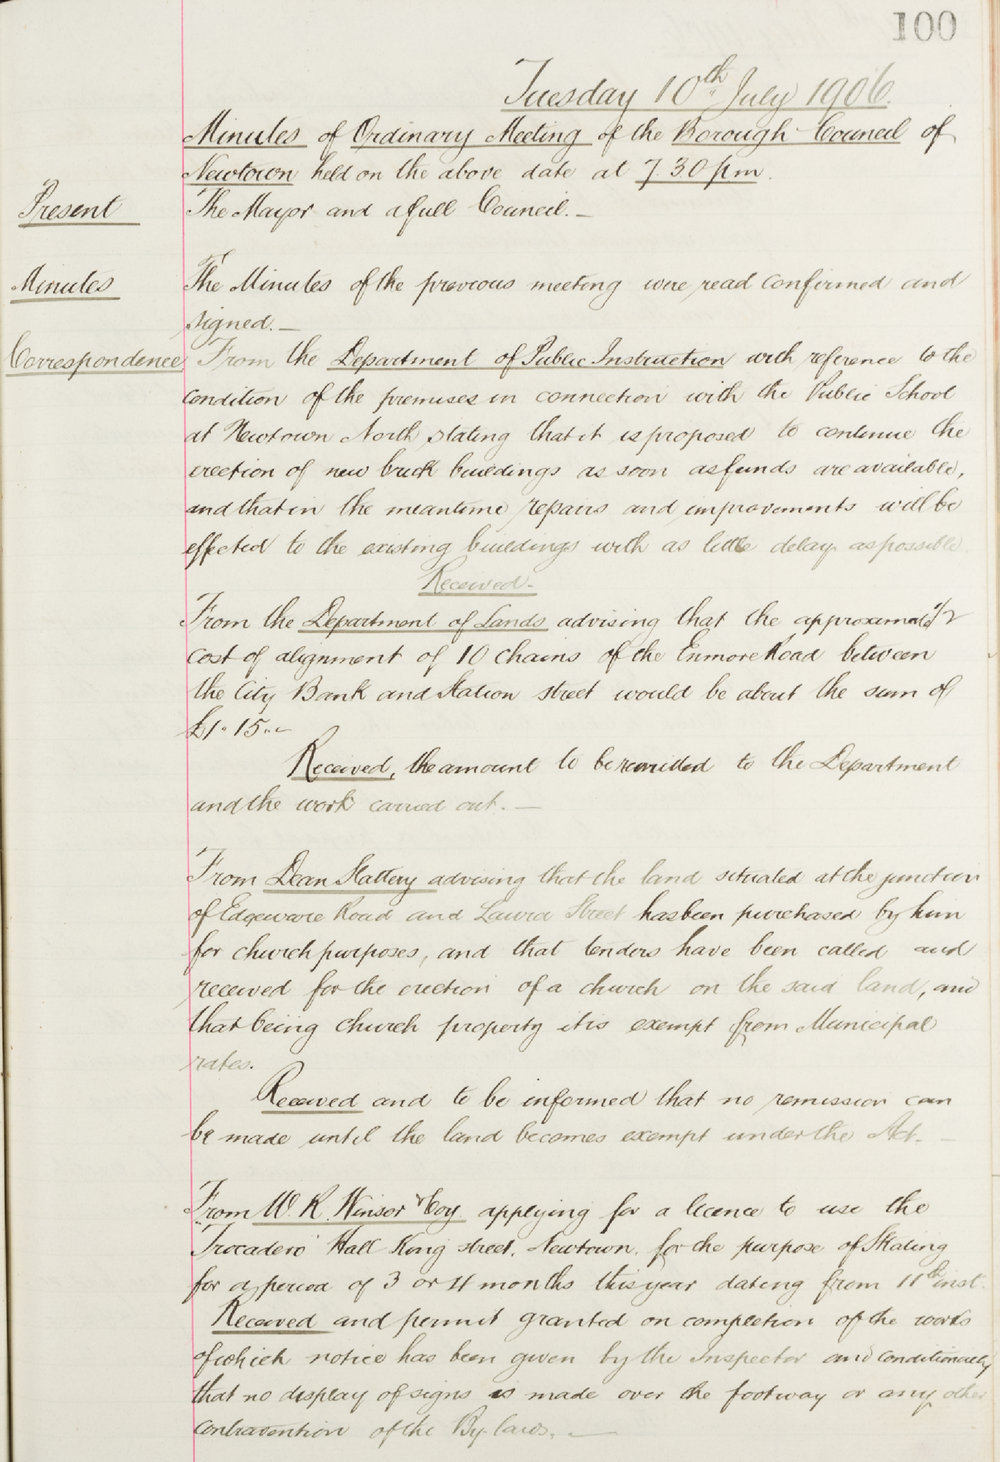 100
Tuesday 10th July 1906.
Minutes of Ordinary Meeting of the Borough Council of
Newtown held on the above date at 7.30 pm.
Present The Mayor and a full Council. —
Minutes The Minutes of the previous meeting were read confirmed and
signed. —
Correspondence From the Department of Public Instruction with reference to the
condition of the premises in connection with the Public School
at Newtown North, stating that it is proposed to continue the
erection of new brick buildings as soon as funds are available,
and that in the meantime repairs and improvements will be
effected to the existing buildings with as little delay as possible
Received -
From the Department of Lands advising that the approximate 1/2
cost of alignment of 10 chains of the Enmore Road between
the City Bank and Station street would be about the sum of
£1.15.-
Received, the amount to be remitted to the Department
and the work carried out. —
From Dean Slattery advising that the land situated at the junction
of Edgeware Road and Laura Street has been purchased by him
for church purposes, and that tenders have been called and
received for the erection of a church on the said land, and
that being church property it is exempt from Municipal
rates.
Received and to be informed that no remission can
be made until the land becomes exempt under the Act. —
From W. R. Winsor & Coy applying for a licence to use the
Trocadero Hall King street, Newtown, for the purpose of Skating
for a period of 3 or 4 months this year dating from 11th inst.
Received and permit granted on completion of the works
of which notice has been given by the Inspector and conditionally
that no display of signs is made over the footway or any other
contravention of the By-laws. —